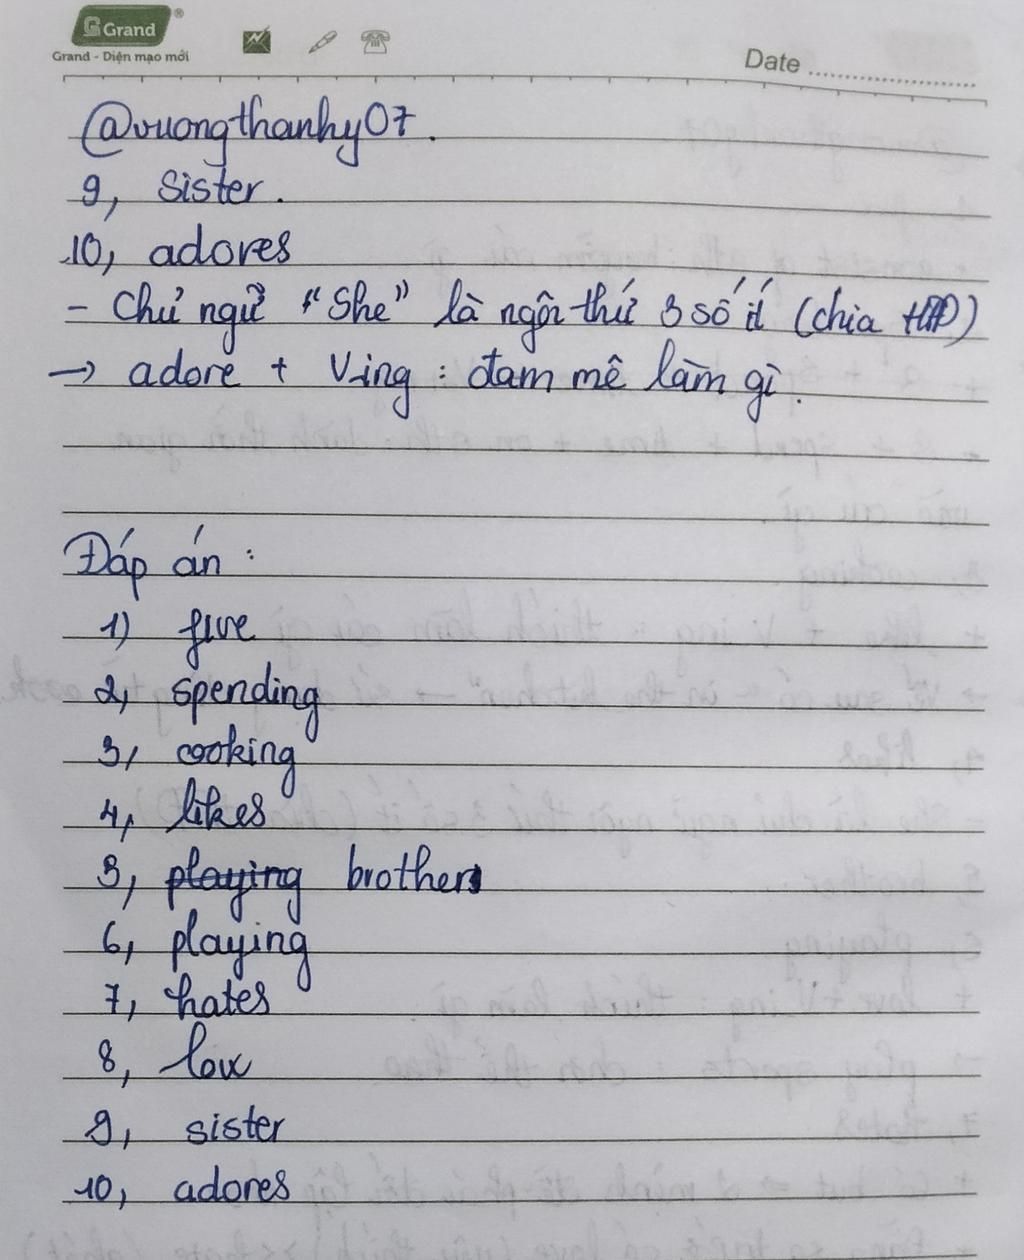 Grand
Grand - Diện mạo mới
Date
@vuongthanhy07.
9, Sister.
10, adores
- Chủ ngữ "She" là ngôi thứ 3 số ít (chia tHTĐ)
→ adore + Ving : đam mê làm gì.
Đáp án :
1) five
2, spending
3, cooking
4, likes
5, playing brother
6, playing
7, hates
8, love
9, sister
10, adores